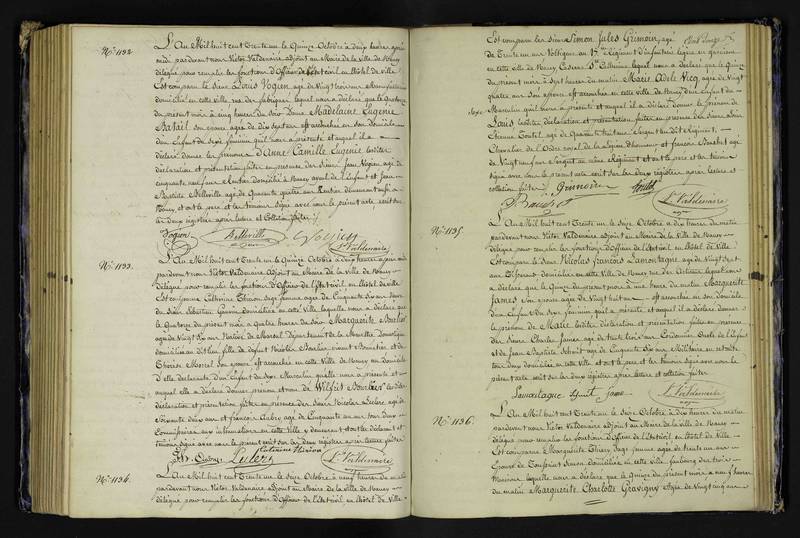 N.º 1132.
L'An Mil huit cent Trente un le Quinze Octobre à deux heures après
midi pardevant nous Victor Valdenaire adjoint au Maire de la ville de Nancy
délégué pour remplir les fonctions d'Officier de l'état civil en l'hôtel de ville
Est comparu le sieur Louis Vogien agé de Vingt trois ans
domicilié en cette ville rue des fabriques lequel nous a déclaré que le Quatorze
du présent mois à cinq heures du soir Dame Madelaine Eugenie
Batail son épouse agée de dix sept ans est accouchée en son domicile
d'un Enfant du sexe féminin qu'il nous a présenté et auquel il a
déclaré donner les prénoms d'Anne Camille Eugenie lesdites
déclaration et présentation faites en présence des sieurs Jean Vogien agé de
cinquante neuf ans Rentier domicilié à Nancy ayeul de l'enfant et Jean
Baptiste Belleville agé de Quarante quatre ans Rentier demeurant aussi à
Nancy, et ont le père et les témoins signé avec nous le présent acte, écrit sur
les deux registres après lecture et Collation faites
Vogien Belleville Vogien Vr Valdenaire
N.º 1133.
L'An Mil huit cent Trente un le Quinze Octobre à deux heures après midi
pardevant nous Victor Valdenaire adjoint au Maire de la Ville de Nancy
délégué pour remplir les fonctions d'Officier de l'état civil en l'hôtel de ville
Est comparue Catherine Thirion sage femme agée de Cinquante six ans
du sieur Sébastien domiciliée en cette Ville laquelle nous a déclaré que
le Quatorze du présent mois à Quatre heures du soir Marguerite Bourlier
agée de Vingt six ans Native de Morsal Département de la Meurthe Domestique
domiciliée audit lieu, fille de défunt Nicolas Bourlier vivant et de
Thérèse Marsal son épouse est accouchée en cette Ville de Nancy au domicile
d'elle déclarante d'un Enfant du sexe Masculin qu'elle nous a présenté et
auquel elle a déclaré donner prénom et nom de Wilfrit Bourlier lesdites
déclaration et présentation faites en présence des sieurs Nicolas Leclerc agé de
Soixante deux ans et françois Aubry agé de Cinquante un ans tous deux
Commissaires aux inhumations en cette Ville y demeurant et ont les déclarant et
témoins signé avec nous le présent écrit sur les deux registres après lecture faites
Catherine Thirion Vr Valdenaire
N.º 1134.
L'An Mil huit cent Trente un le Seize Octobre à neuf heures du matin
pardevant nous Victor Valdenaire adjoint au Maire de la ville de Nancy
délégué pour remplir les fonctions d'Officier de l'état civil en l'hôtel de Ville
Est comparu le sieur Simon Jules Grimoin, agé
de Trente un ans Voltigeur au 17.me Régiment d'infanterie légère en garnison
en cette ville de Nancy Caserne S.te Catherine lequel nous a déclaré que le Quinze
du présent mois à Sept heures du matin Marie Adele Vicq agée de Vingt
quatre ans son épouse est accouchée en cette Ville de Nancy d'un Enfant du
sexe Masculin qu'il nous a présenté et auquel il a déclaré donner le prénom de
Louis lesdites déclaration et présentation faites en présence des sieurs
Etienne Contal agé de Quarante huit ans Sergent au dit Régiment,
Chevalier de l'Ordre royal de la légion d'honneur et françois agé
de Vingt neuf ans Sergent au même Régiment et ont le père et les témoins
signé avec nous le présent acte écrit sur les deux registres après lecture et
collation faites Grimoin Vr Valdenaire
N.º 1135.
L'An Mil huit cent Trente un le Seize Octobre à dix heures du matin
pardevant nous Victor Valdenaire adjoint au Maire de la Ville de Nancy
délégué pour remplir les fonctions d'Officier de l'état civil en l'hôtel de Ville
Est comparu le sieur Nicolas François Lamontagne agé de Vingt sept
ans domicilié en cette Ville de Nancy rue des lequel nous
a déclaré que le Quinze du présent mois à une heure du matin Marguerite
James son épouse agée de Vingt huit ans est accouchée en son domicile
d'un Enfant du sexe féminin qu'il nous a présenté et auquel il a déclaré donner
le prénom de Marie lesdites déclaration et présentation faites en présence
des sieurs Charles James agé de trente trois ans Cordonnier Oncle de l'Enfant
et de Jean Baptiste agé de Cinquante six ans Militaire en retraite
tous deux domiciliés en cette ville et ont le père et les témoins signé avec nous le
présent acte écrit sur les deux registres après lecture et collation faites
Lamontagne James Vr Valdenaire
N.º 1136.
L'An Mil huit cent Trente un le Seize Octobre à dix heures du matin
pardevant nous Victor Valdenaire adjoint au Maire de la Ville de Nancy
délégué pour remplir les fonctions d'Officier de l'état civil en l'hôtel de Ville
Est comparue Marguerite Thiery sage femme agée de trente un ans
Epouse de domiciliée en cette ville faubourg des trois
Maisons, laquelle nous a déclaré que le Quinze du présent mois à neuf heures
du matin Marguerite Charlotte Gravigny Agée de Vingt cinq ans